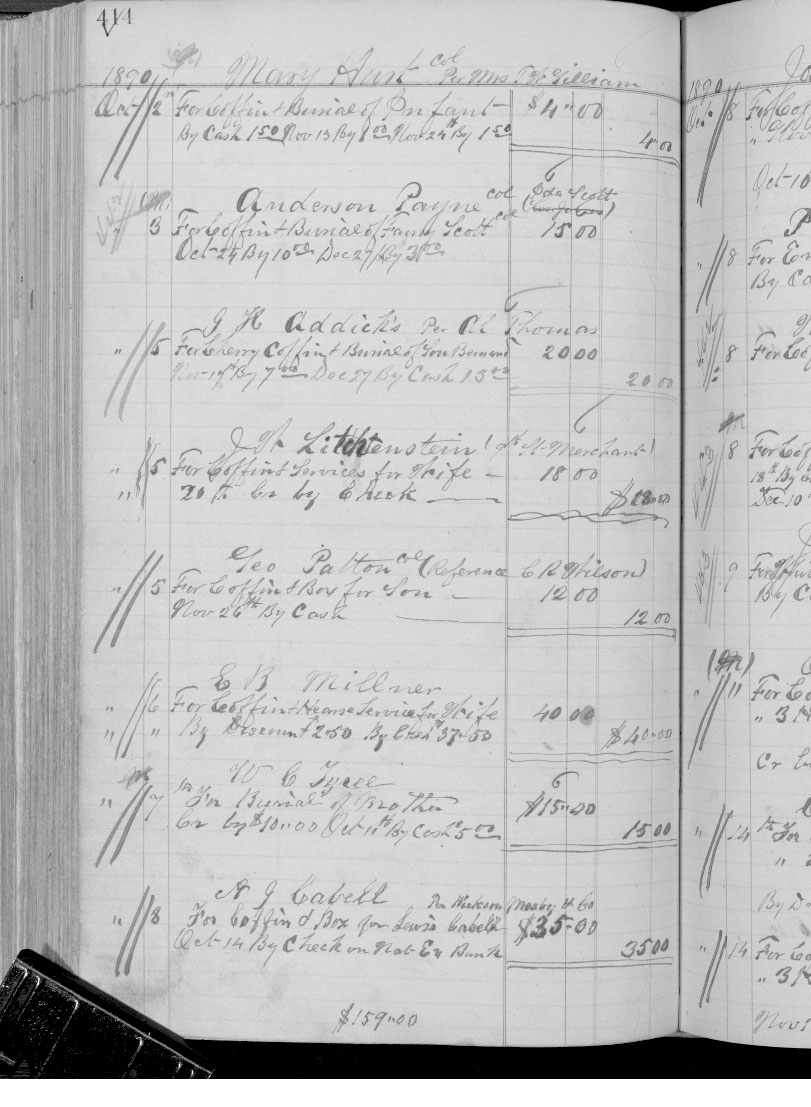 414
1890 Mary Hunt col Per Mrs T W Gilliam
Oct 2" For Coffin & Burial of Infant $4"00
By Cash 1 50 Nov 13 By 1 00 Nov 24th By 1 50 4"00
Anderson Payne col (Ida Scott)
" 3 For Coffin & Burial of Fanny Scott col 15 00
Oct 24 By 10 00 Dec 27 By 3 00
G H Addick's Per Al Thomas
" 5 For Cherry Coffin & Burial of Son Bernard 20 00
Nov 19th By 7 00 Dec 27 By Cash 13 00 20 00
Litchtenstein (9th St Merchant)
" 5 For Coffin & Services for Wife 18 00
" 20th Cr by Check $18"00
Geo Patton col (Reference C R Wilson)
" 5 For Coffin & Box for Son 12 00
Nov 26th By Cash 12 00
E B Millner
" 6 For Coffin & Hearse Service for Wife 40 00
" " By Discount 2"50 By Cash 37"50 $40"00
W C Tyree
" 7 For Burial of Mother $15"00
Cr by $10"00 Oct 11th By Cash 5 00 15 00
N J Cabell Per Mosby & Co
" 8 For Coffin & Box for Lewis Cabell $35"00
Oct 14 By Check on Nat Ex Bank 35 00
$159"00
1890
Oct 8 For Cof
" Nov
Oct 10
" 8 For
By Ca
8 For Cof
8 For Cof
18th By
Dec 10
9 For Coffin
By C
" 11 For Co
" 31
Cr by
" 14 For
"
By D
" 14 For Co
" 31
Nov 1